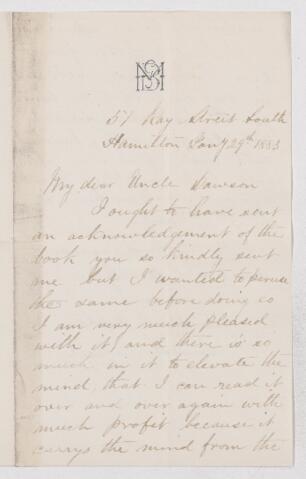 57 Kay Street South
Hamilton Jany 29th 1883
My dear Uncle Dawson
I ought to have sent
an acknowledgement of the
book you so kindly sent
me but I wanted to peruse
the same before doing so
I am very much pleased
with it, and there is so
much in it to elevate the
mind, that I can read it
over and over again with
much profit because it
carrys the mind from the